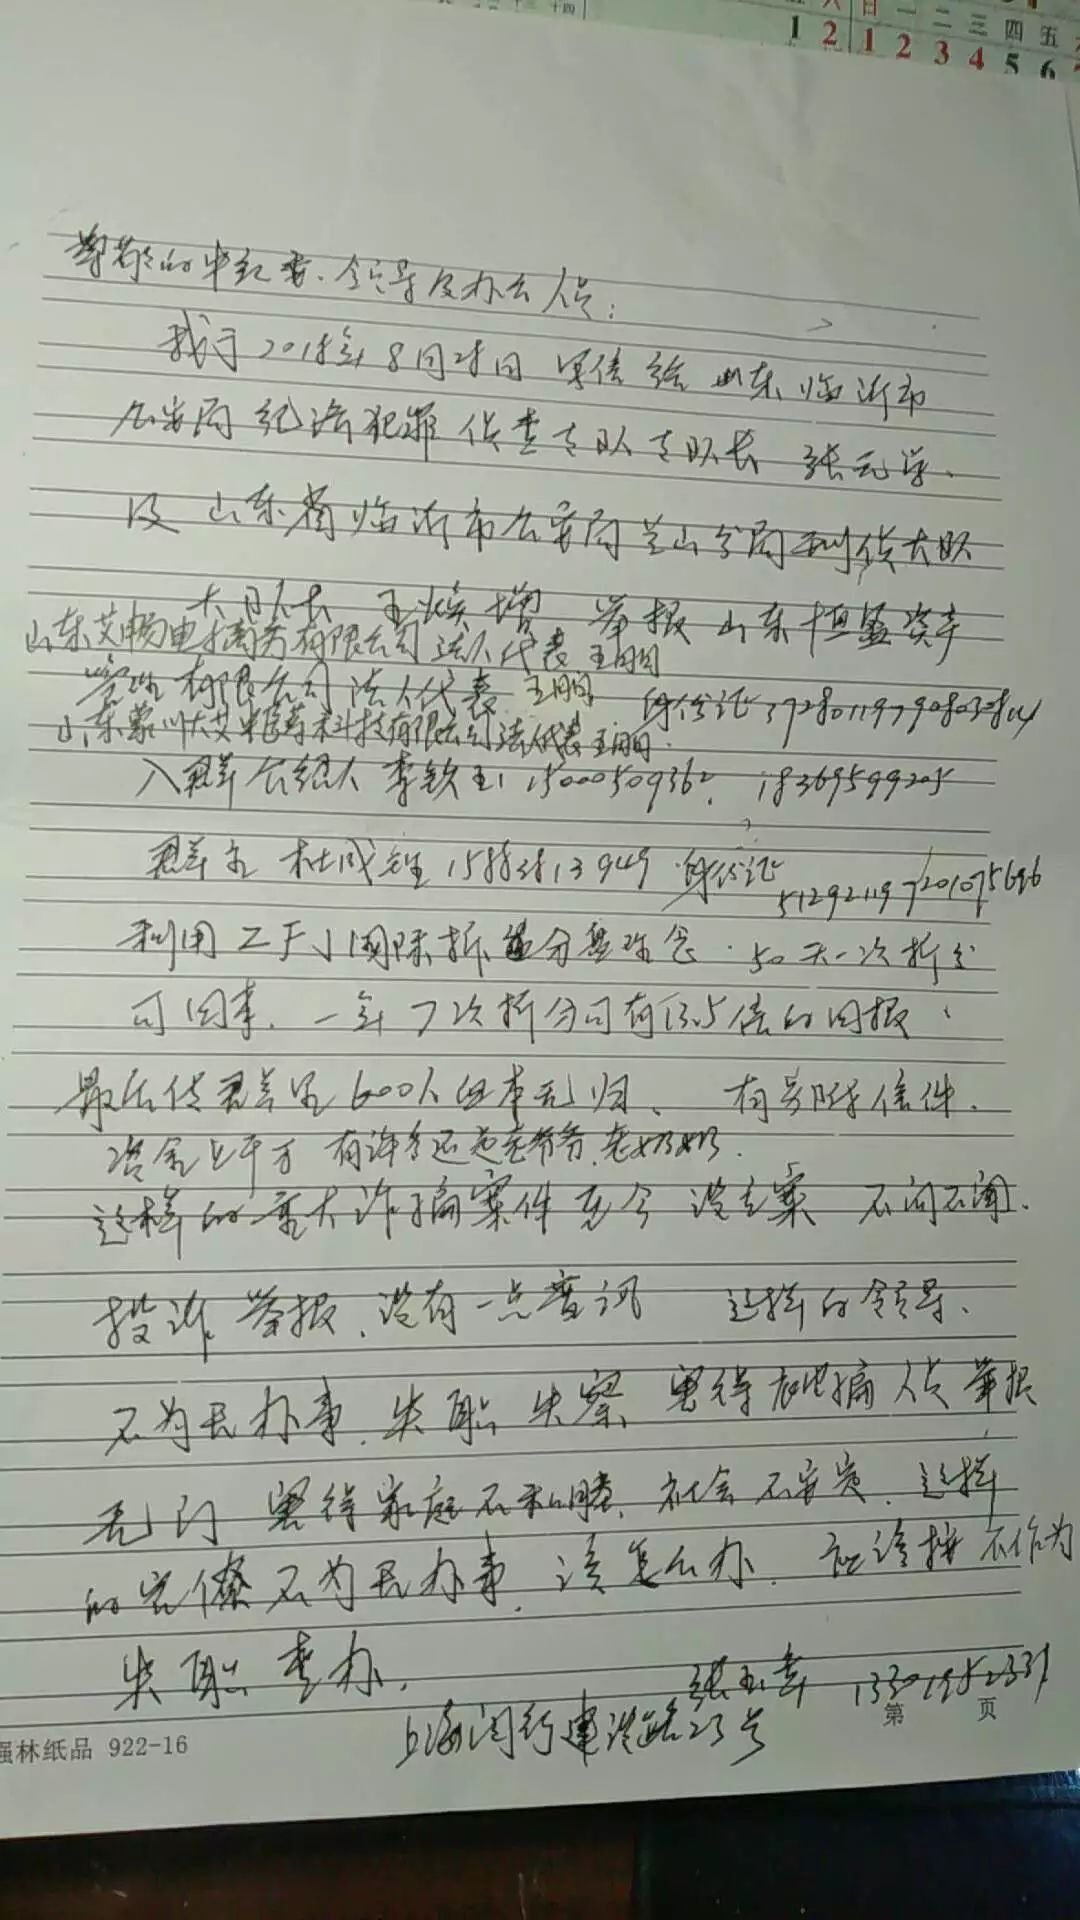 六 日 一 二 三 四 五
1 2 1 2 3 4 5 6
尊敬的中纪委、领导及办公人员：
我于2018年8月28日 写信给山东临沂市
公安局经济犯罪侦查支队支队长 张元学、
及山东省临沂市公安局兰山分局刑侦大队
大队长 王焕增 举报山东恒盛资产
山东艾畅电子商务有限公司法人代表王明
管理有限公司法人代表 王明 身份证
山东蒙川大艾草科技有限公司法人代表王明.
入群介绍人 李钦玉 15000509360、18369599205
群主 杜成 身份证
利用ZFJ国际拆分盘理念、50天一次拆分
可回本、一年7次拆分可有13.5倍的回报、
最后使群里600人血本无归、有另附信件.
资金上千万 有许多还是老爷爷、老奶奶.
这样的重大诈骗案件至今没立案 不问不闻.
投诉、举报、没有一点音讯 这样的领导、
不为民办事、失职失察、害得被骗人员举报
无门 害得家庭不和睦、社会不安定、这样
的官僚不为民办事、该怎么办、应该按不作为
失职查办.
张玉 13301952331
上海闵行建设路23号
强林纸品 922-16 第 页